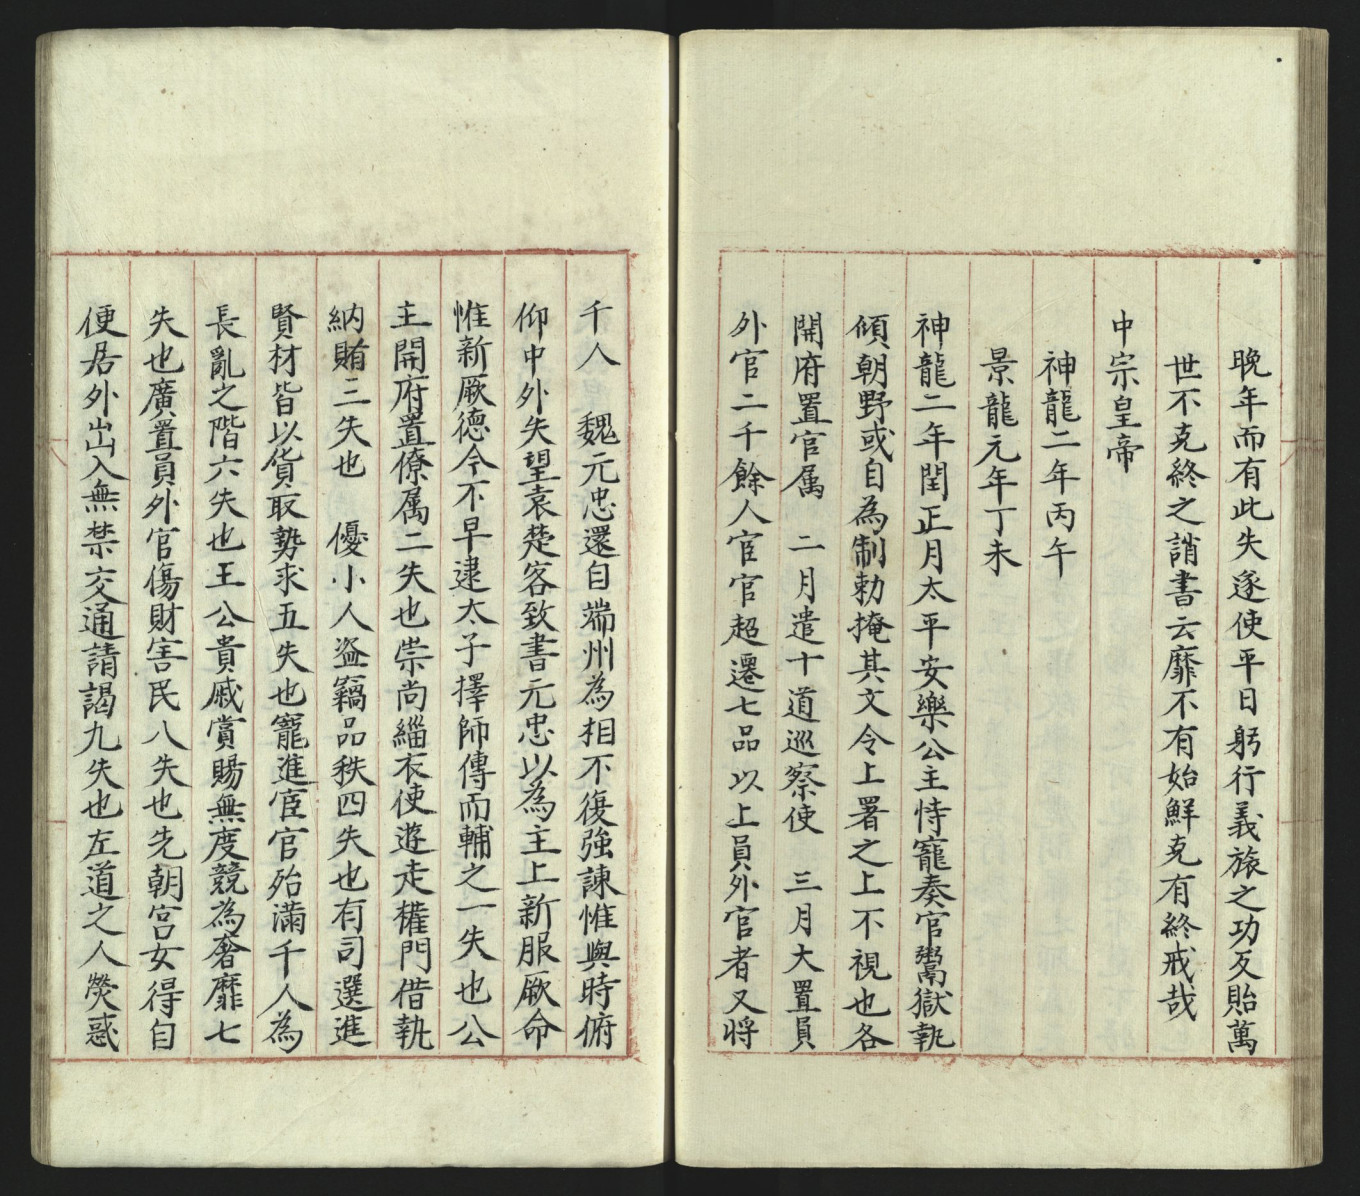 晚年而有此失遂使平日躬行義旅之功反貽萬
世不克終之誚書云靡不有始鮮克有終戒哉
中宗皇帝
神龍二年丙午
景龍元年丁未
神龍二年閏正月太平安樂公主恃寵奏官鬻獄執
傾朝野或自為制勅掩其文令上署之上不視也各
開府置官属　二月遣十道巡察使　三月大置員
外官二千餘人宦官超遷七品以上員外官者又將
千人　魏元忠還自端州為相不復強諫惟與時俯
仰中外失望袁楚客致書元忠以為主上新服厥命
惟新厥德今不早建太子擇師傅而輔之一失也公
主開府置僚属二失也崇尚緇衣使遊走權門借執
納賄三失也　優小人盜竊品秩四失也有司選進
賢材皆以貨取勢求五失也寵進宦官殆滿千人為
長亂之階六失也王公貴戚賞賜無度競為奢靡七
失也廣置員外官傷財害民八失也先朝宮女得自
便居外出入無禁交通請謁九失也左道之人熒惑